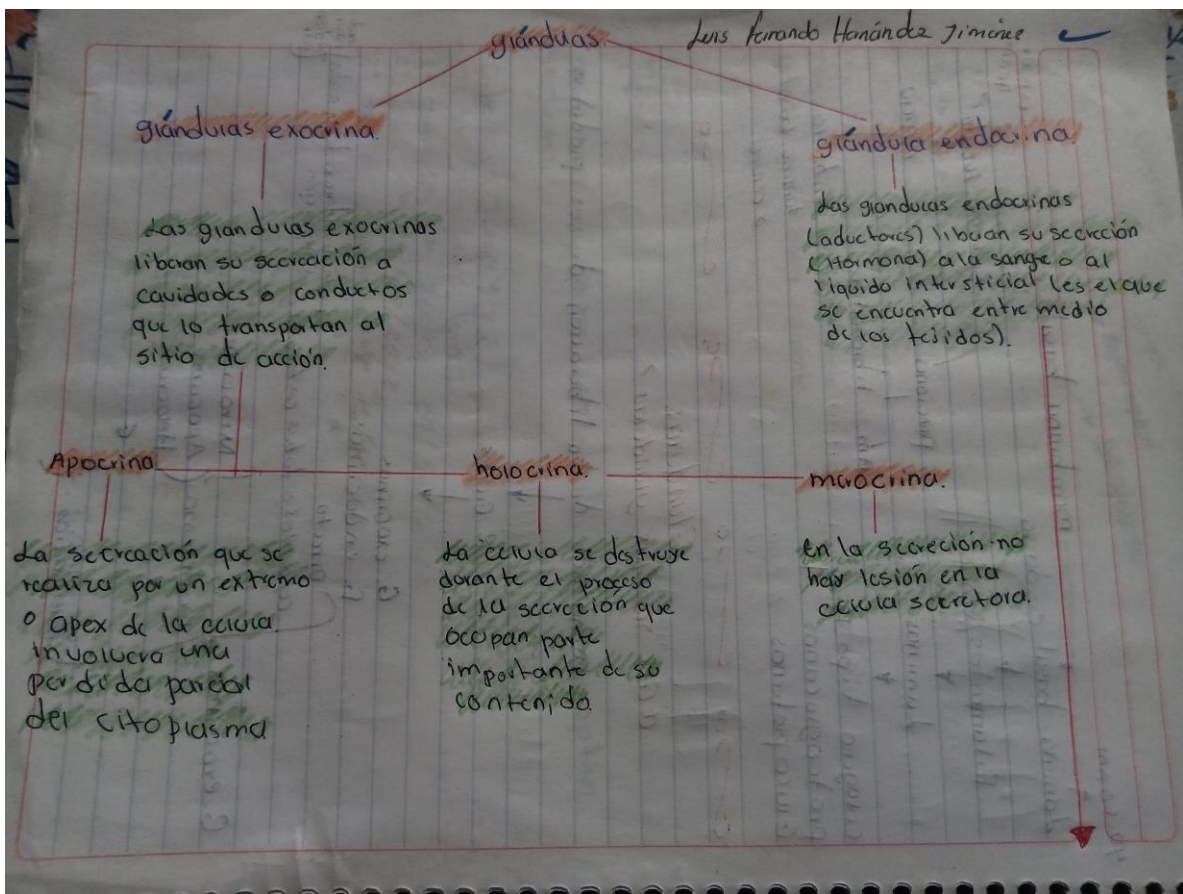 glánduas.
Luis Fernando Hanández Jiménez
glándulas exocrina.
glándula endocrina
Las glandulas exocrinas
liberan su secreación a
cavidades o conductos
que lo transportan al
sitio de acción.
Las glandulas endocrinas
(aductores) liberan su secreción
(Hormona) a la sangre o al
liquido intersticial (es el que
se encuentra entre medio
de los tejidos).
Apocrina
holocrina.
merocrina.
La secreación que se
realiza por un extremo
o apex de la celula
involucra una
perdida parcial
del citoplasma
La celula se destruye
durante el proceso
de la secreción que
ocupan parte
importante de su
contenido.
en la secreción no
hay lesión en la
celula secretora.